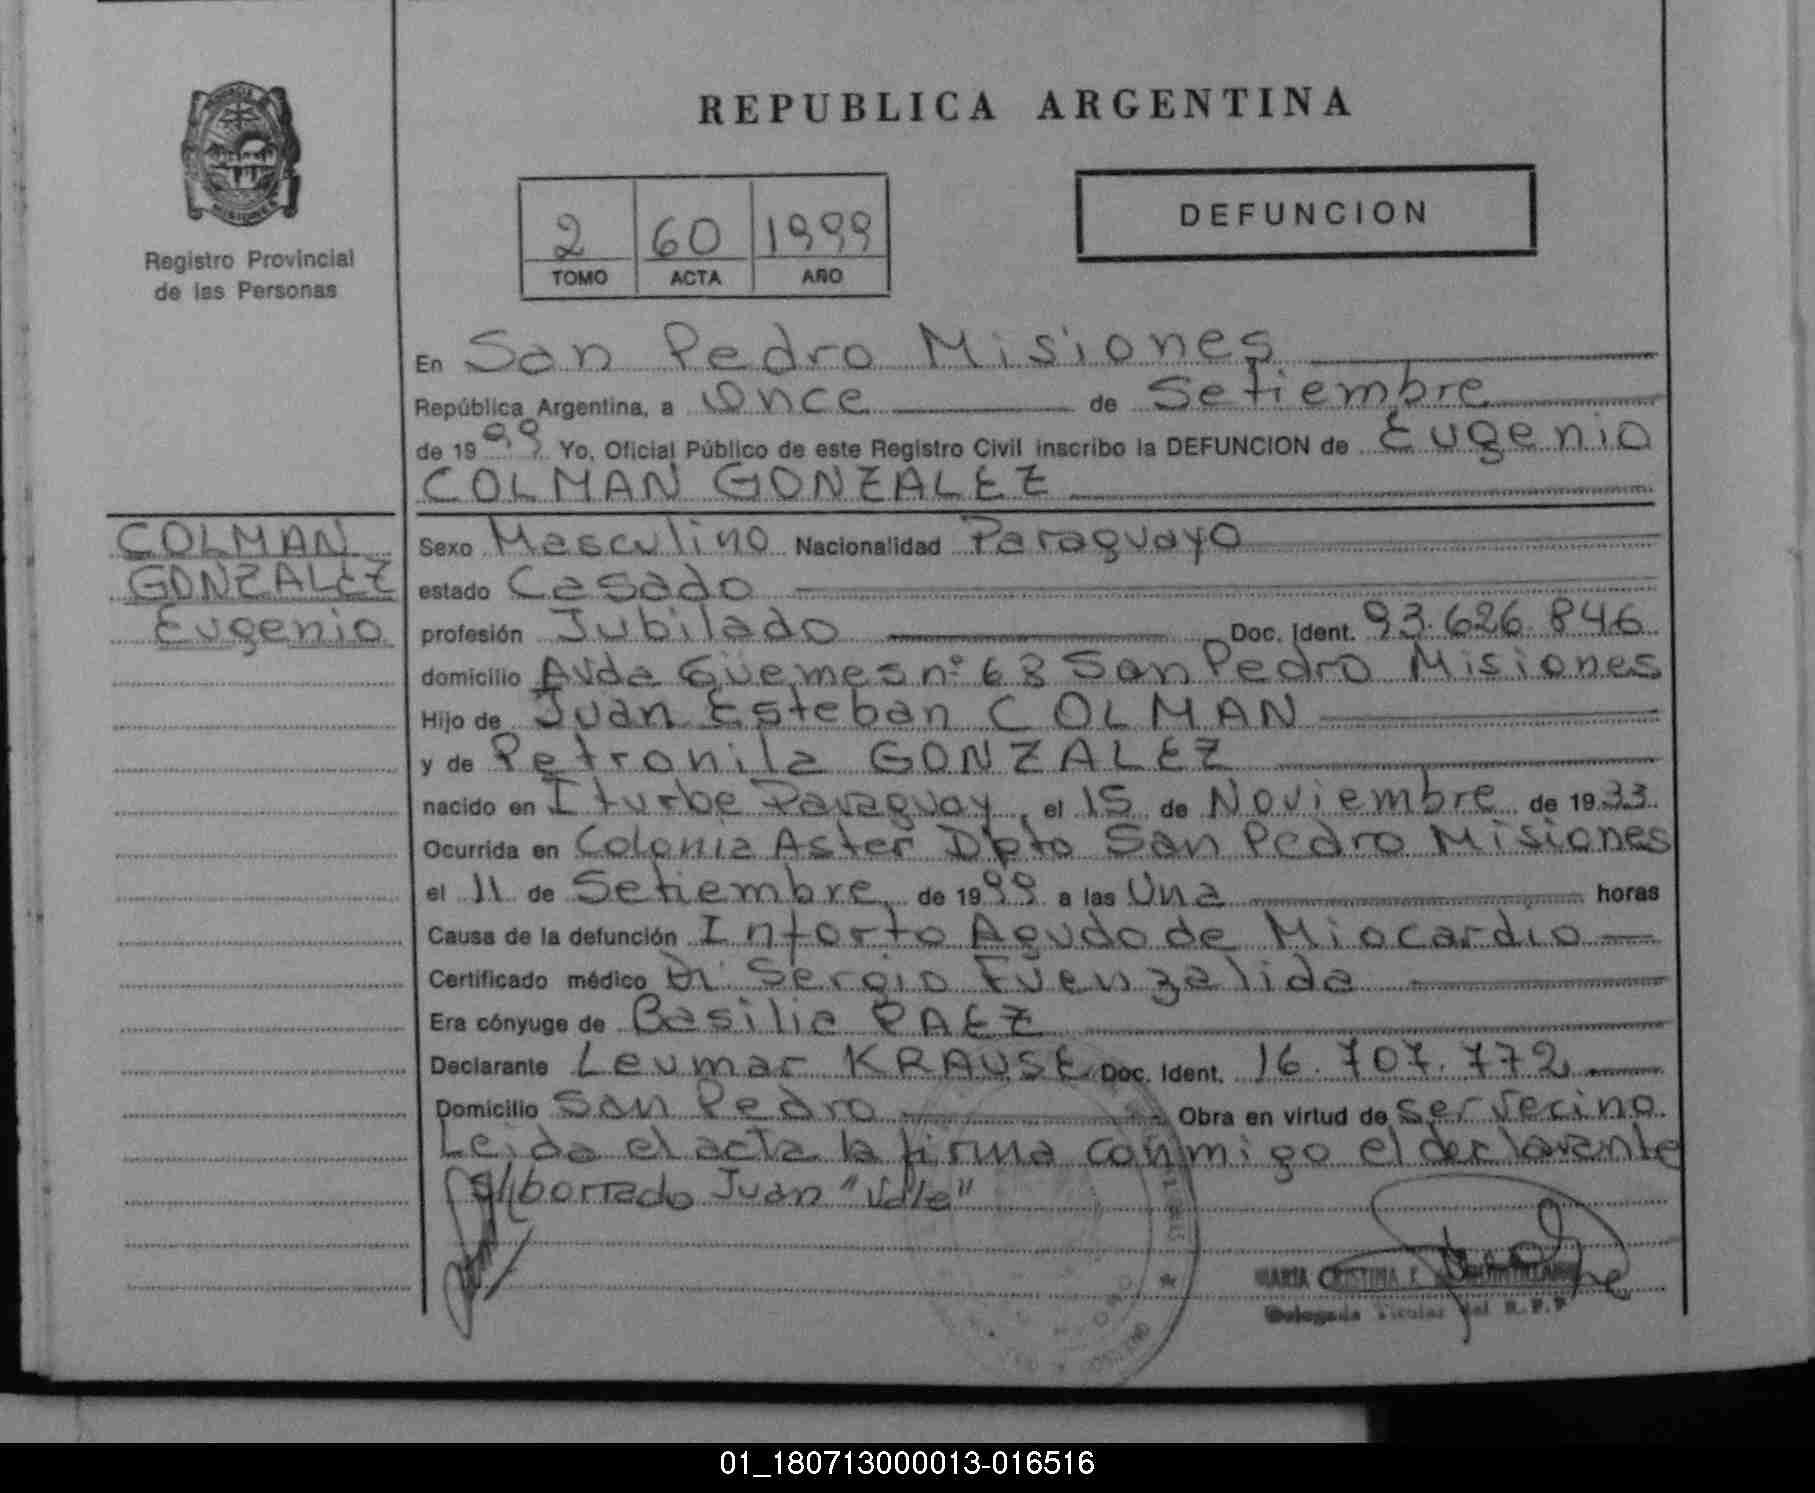 REPUBLICA ARGENTINA
PROVINCIA
MISIONES
Registro Provincial
de las Personas
2 60 1999
TOMO ACTA AÑO
DEFUNCION
En San Pedro Misiones
República Argentina, a once de Setiembre
de 1999 Yo, Oficial Público de este Registro Civil inscribo la DEFUNCION de Eugenio
COLMAN GONZALEZ
COLMAN
GONZALEZ
Eugenio
Sexo Masculino Nacionalidad Paraguayo
estado Casado
profesión Jubilado Doc. Ident. 93.626.846
domicilio Avda Güemes nº 68 San Pedro Misiones
Hijo de Juan Esteban COLMAN
y de Petronila GONZALEZ
nacido en Iturbe Paraguay, el 15 de Noviembre de 1933
Ocurrida en Colonia Aster Dpto San Pedro Misiones
el 11 de Setiembre de 1999 a las Una horas
Causa de la defunción Infarto Agudo de Miocardio
Certificado médico Dr Sergio Fuenzalida
Era cónyuge de Basilia PAEZ
Declarante Leumar KRAUSE Doc. Ident. 16.707.772
Domicilio San Pedro Obra en virtud de ser vecino.
Leida el acta la firma conmigo el declarante
S/borrado Juan "Vale"
MARIA CRISTINA F.
Delegada Titular del R.P.P
01_180713000013-016516